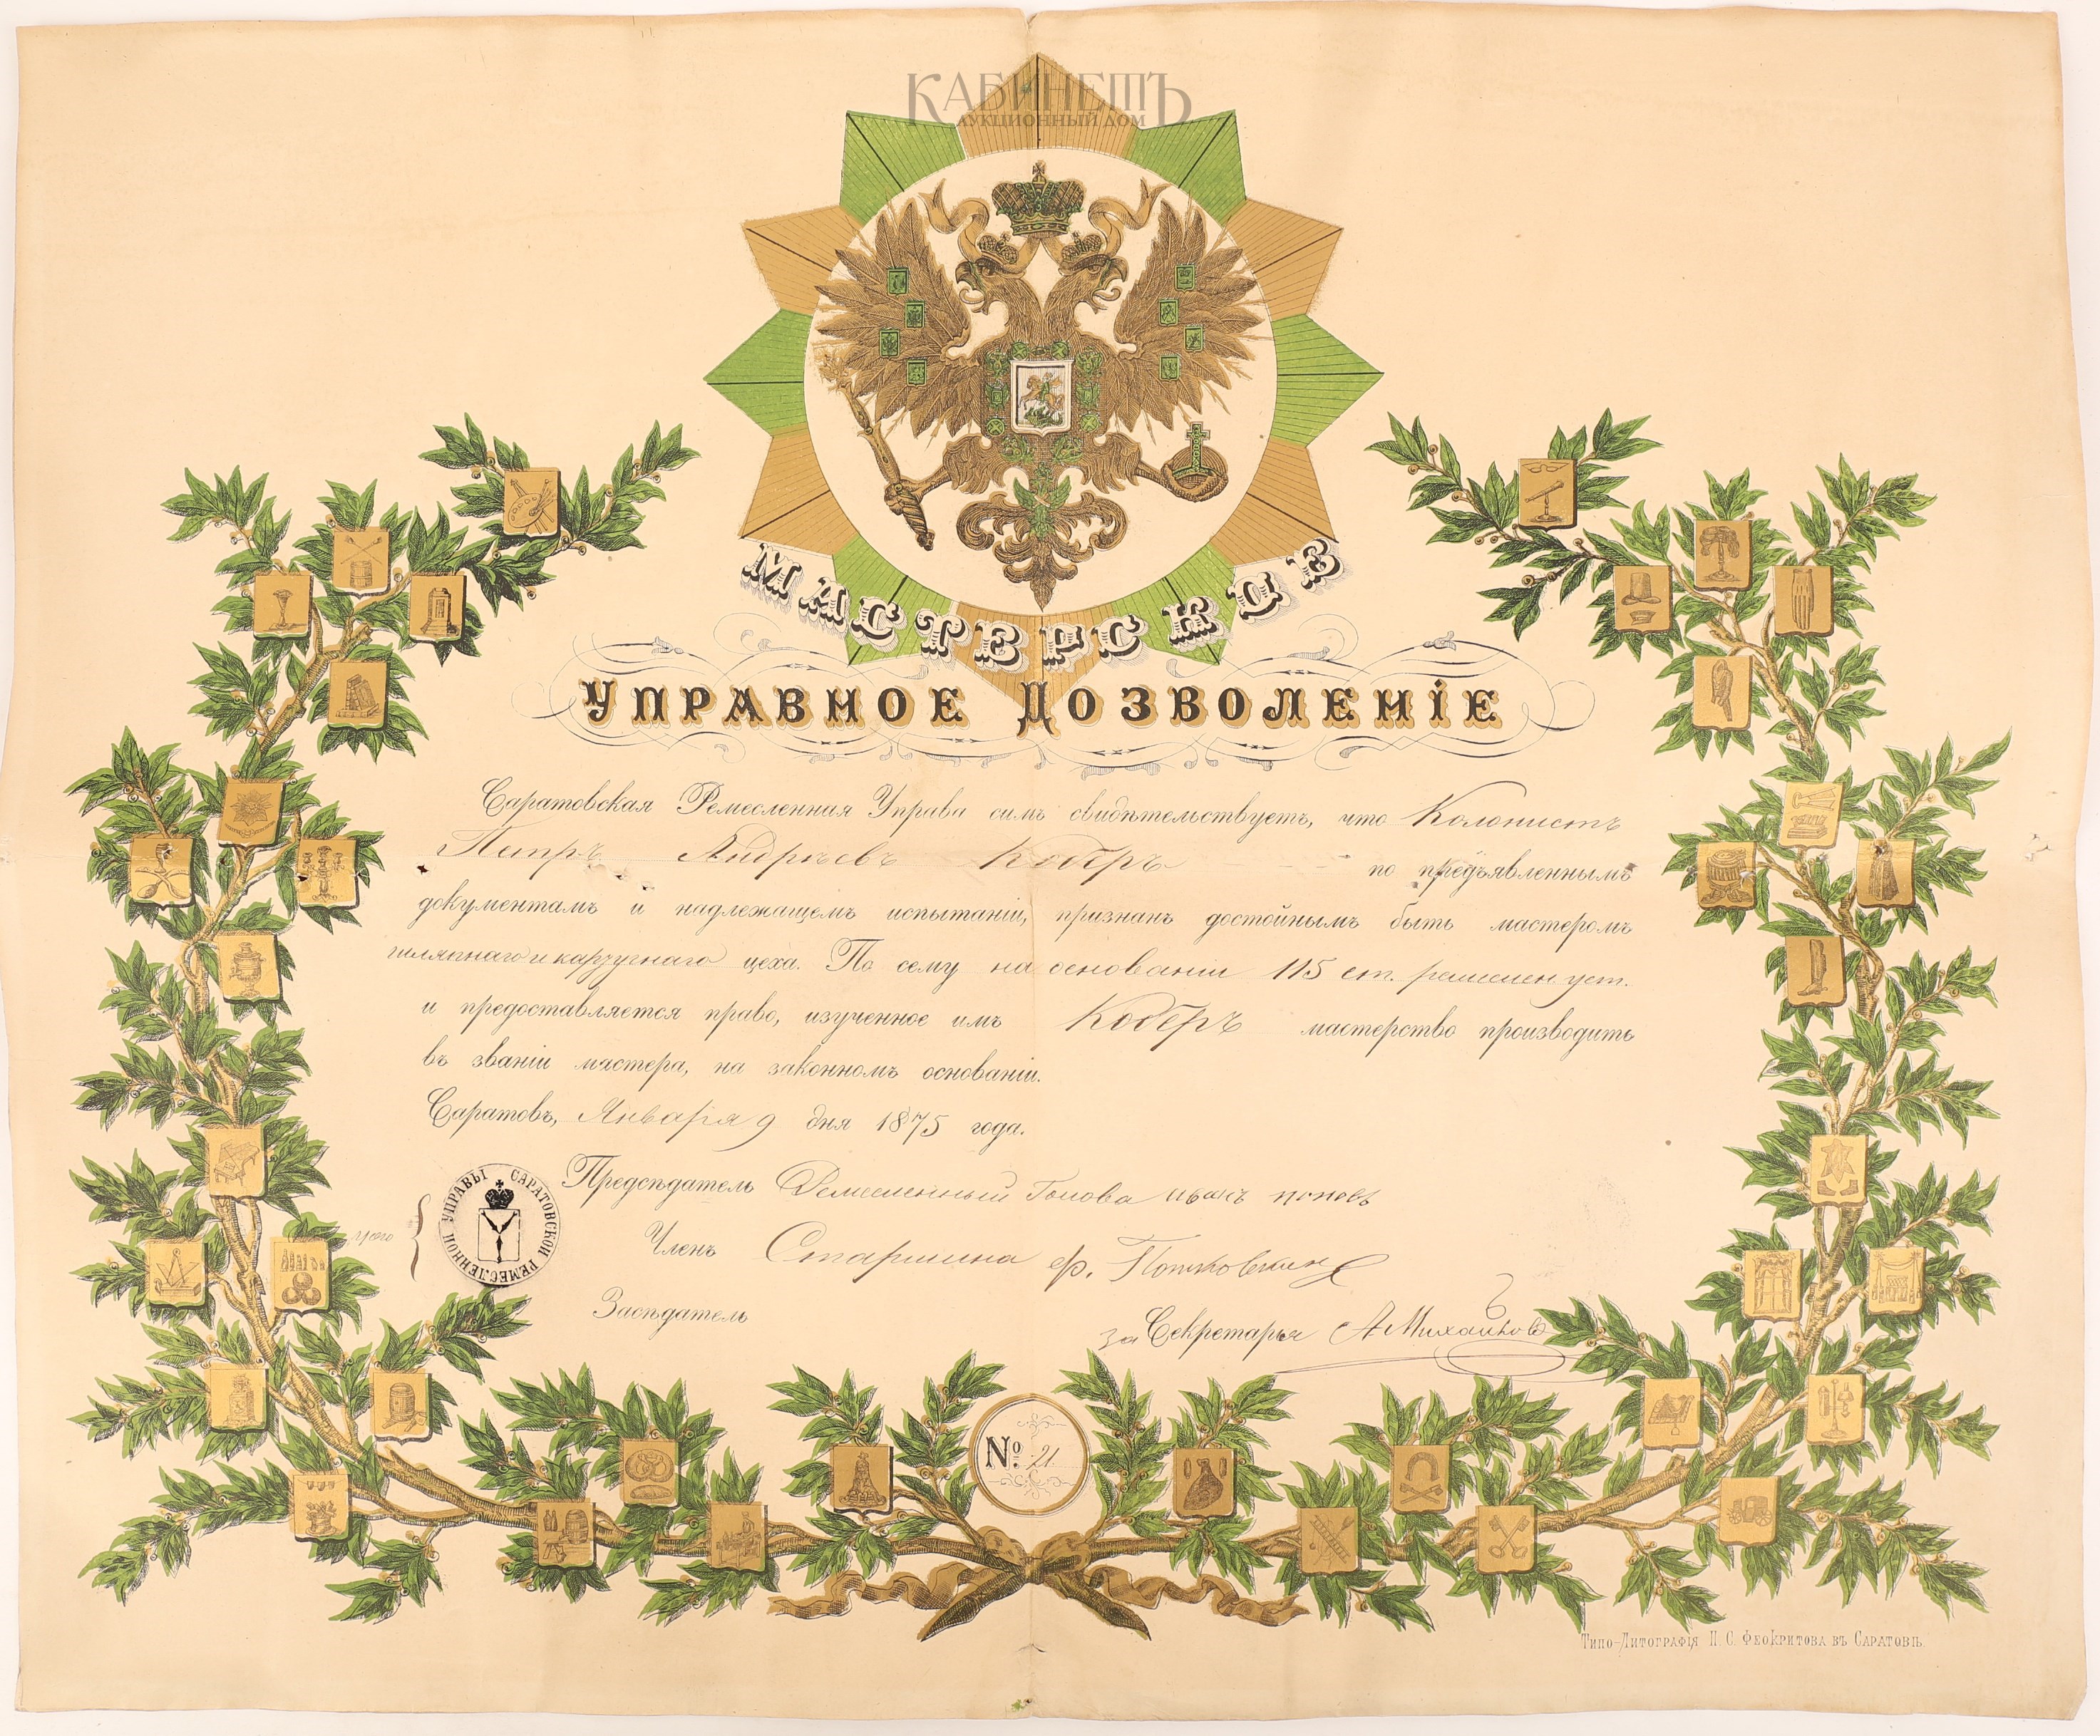 КАБИНЕТЪ
АУКЦИОННЫЙ ДОМ
МАСТЕРСКОЕ
УПРАВНОЕ ДОЗВОЛЕНІЕ
Саратовская Ремесленная Управа симъ свидѣтельствуетъ, что Колонистъ
Петръ Андреевъ Коберъ по предъявленнымъ
документамъ и надлежащемъ испытаніи, признанъ достойнымъ быть мастеромъ
шляпнаго и картузнаго цеха. По сему на основаніи 115 ст. ремеслен. уст.
и предоставляется право, изученное имъ Коберъ мастерство производить
въ званіи мастера, на законномъ основаніи.
Саратовъ, Января 9 дня 1875 года.
Предсѣдатель Ремесленный Голова Иванъ Поповъ
САРАТОВСКОЙ РЕМЕСЛЕННОЙ УПРАВЫ
Членъ Старшина Ф.
Засѣдатель
за Секретаря А Михайловъ
№ 21.
ТИПО-ЛИТОГРАФІЯ П. С. ФЕОКРИТОВА ВЪ САРАТОВѢ.